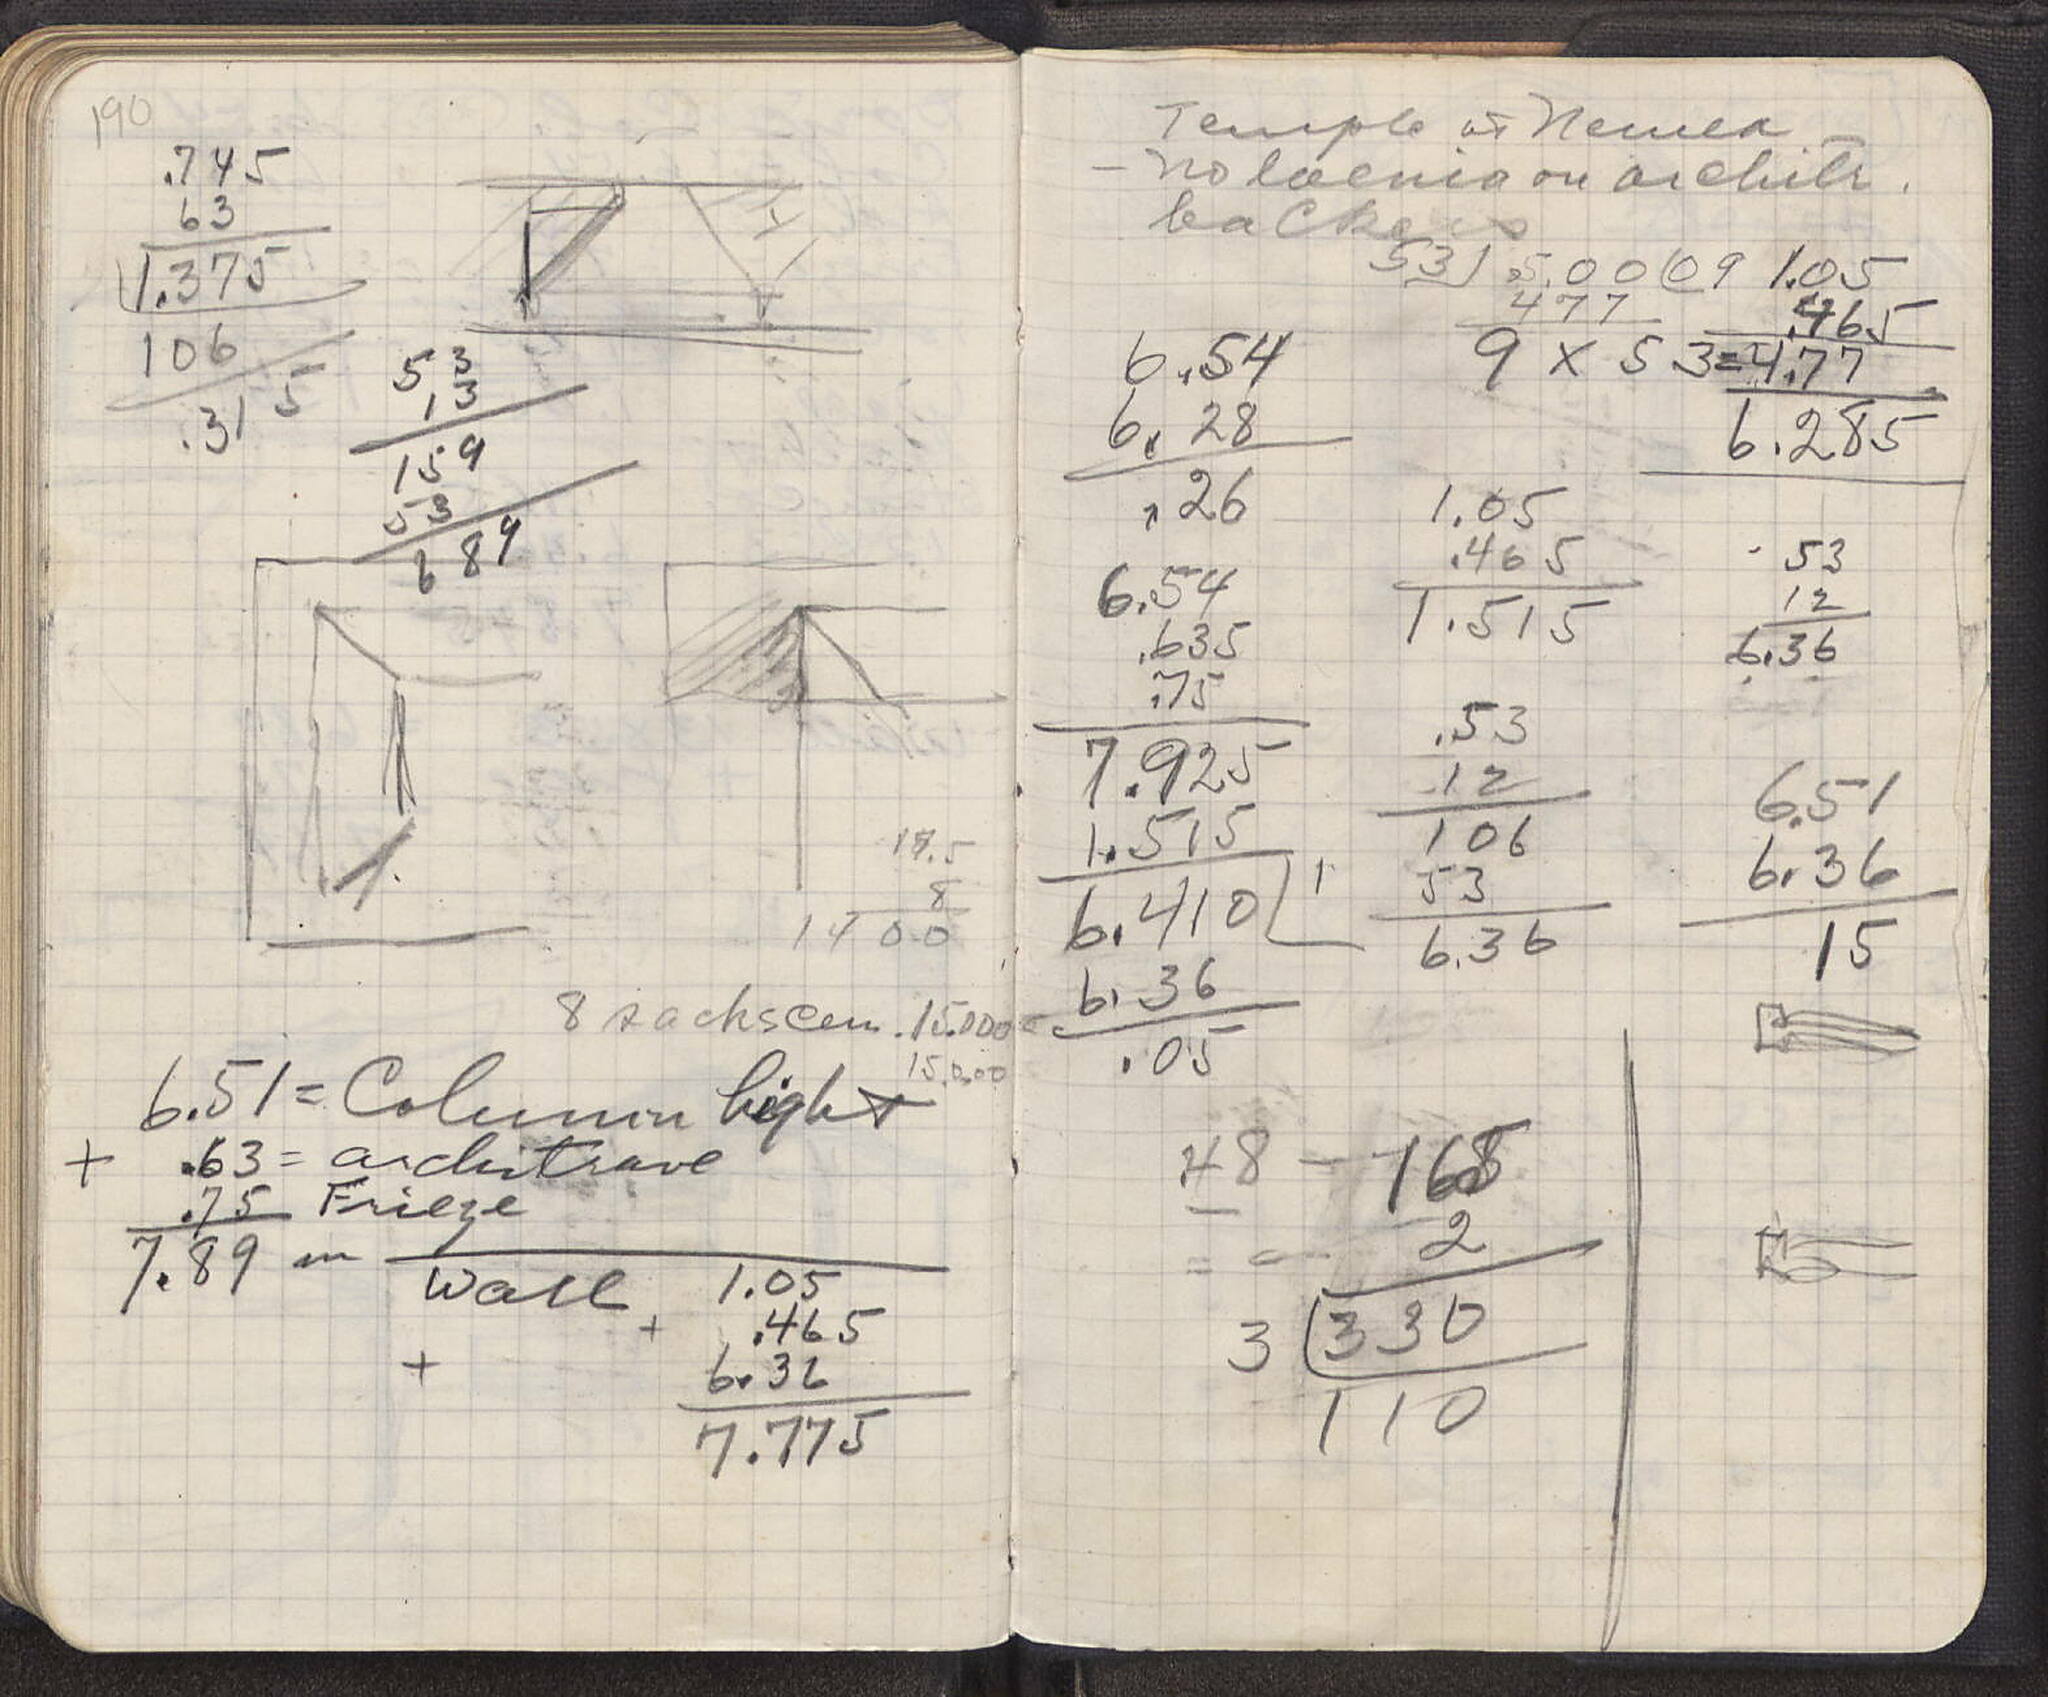 190
.745
63
1.375
106
.315
53
13
159
53
689
17.5
8
1400
8 sackscem. 15.000
15.000
6.51 = Column hight
+ .63 = architrave
.75 Frieze
7.89 m
Wall 1.05
+ .465
+ 6.36
7.775
Temple at Nemea
- no taenia on architr.
backers
53) .500 (09
477
9 X 53 = 4.77
1.05
.465
6.285
6.54
6.28
.26
1.05
.465
1.515
.53
12
6.36
6.54
.635
.75
7.925
1.515
6.410
6.36
.05
.53
12
106
53
6.36
6.51
6.36
15
48 - 168
2
3 330
110